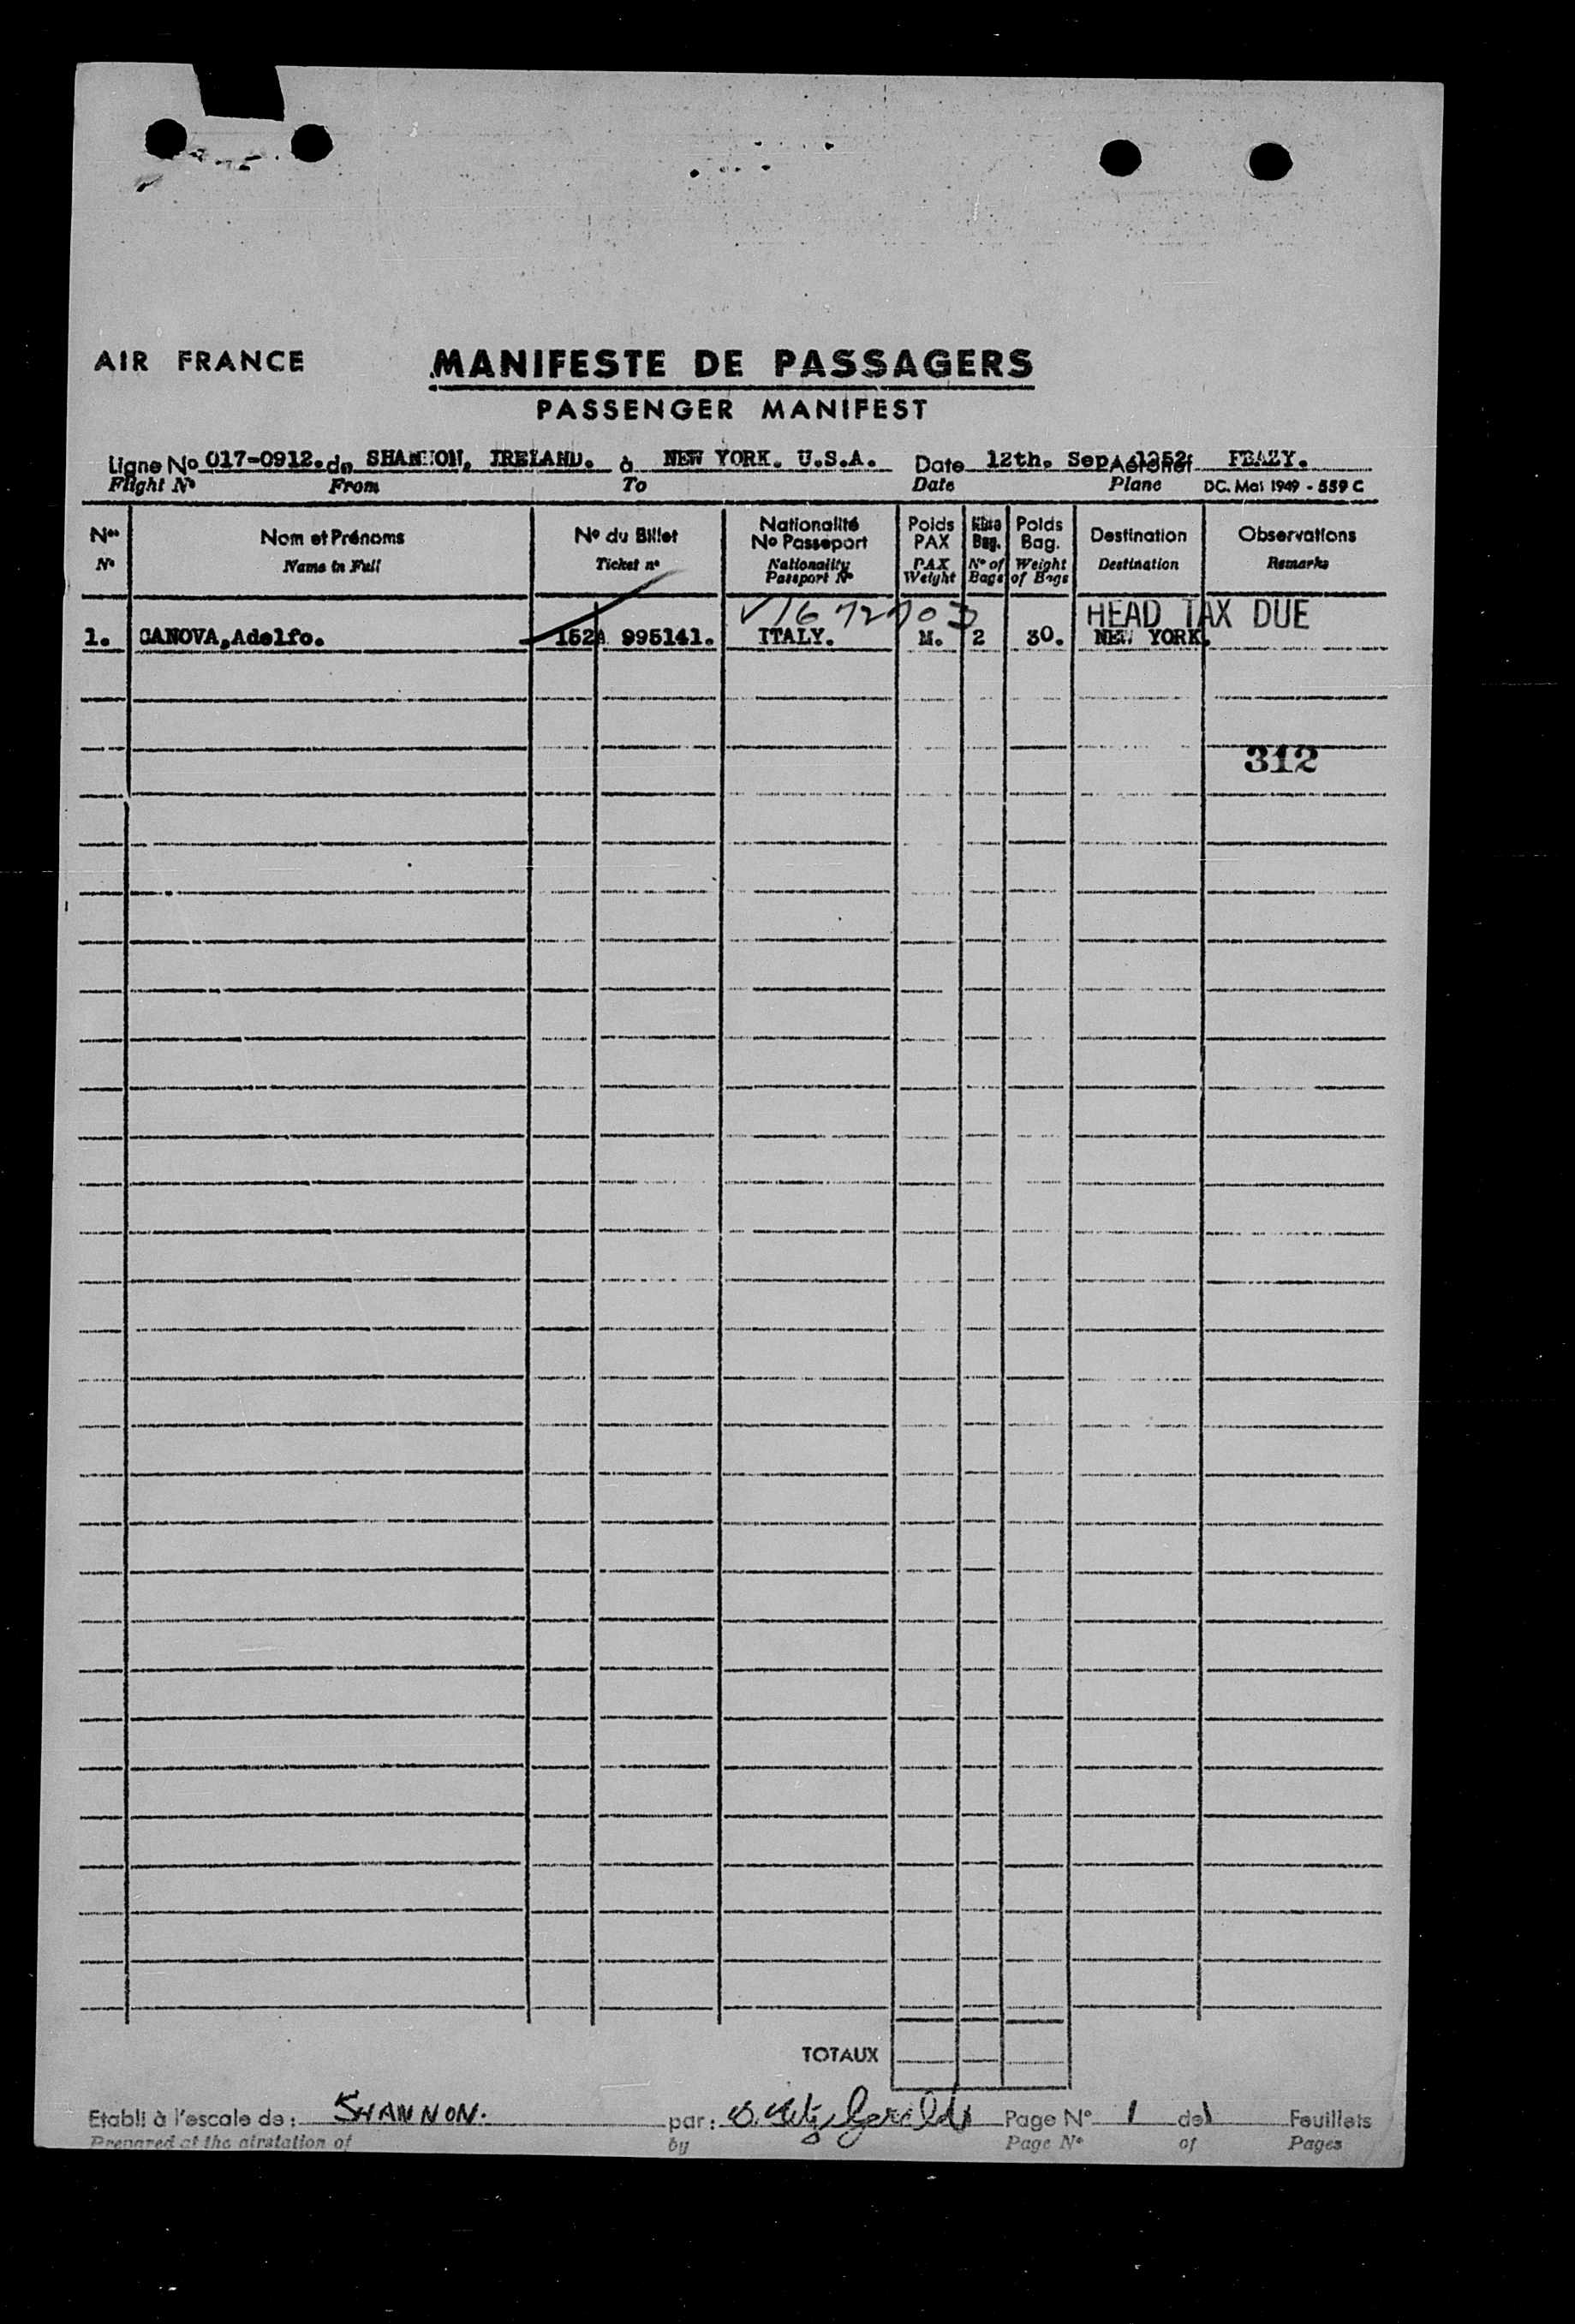 AIR FRANCE
MANIFESTE DE PASSAGERS
PASSENGER MANIFEST
Ligne No 017-0912. de SHANNON, IRELAND. à NEW YORK. U.S.A. Date 12th. Sep. 1952. Aéronef
Flight No From To Date Plane DC. Mai 1949 - 559 C
Nos Nom et Prénoms No du Billet Nationalité No Passeport Poids PAX Nbre Bag. Poids Bag. Destination Observations
No Name in Full Ticket no Nationality Passport No PAX Weight No of Bags Weight of Bags Destination Remarks
HEAD TAX DUE
1. CANOVA,Adolfo. 152A 995141. ITALY. M. 2 30. NEW YORK.
312
TOTAUX
Etabli à l'escale de: SHANNON. par: Page No 1 de 1 Feuillets
Prepared at the airstation of by Page No of Pages